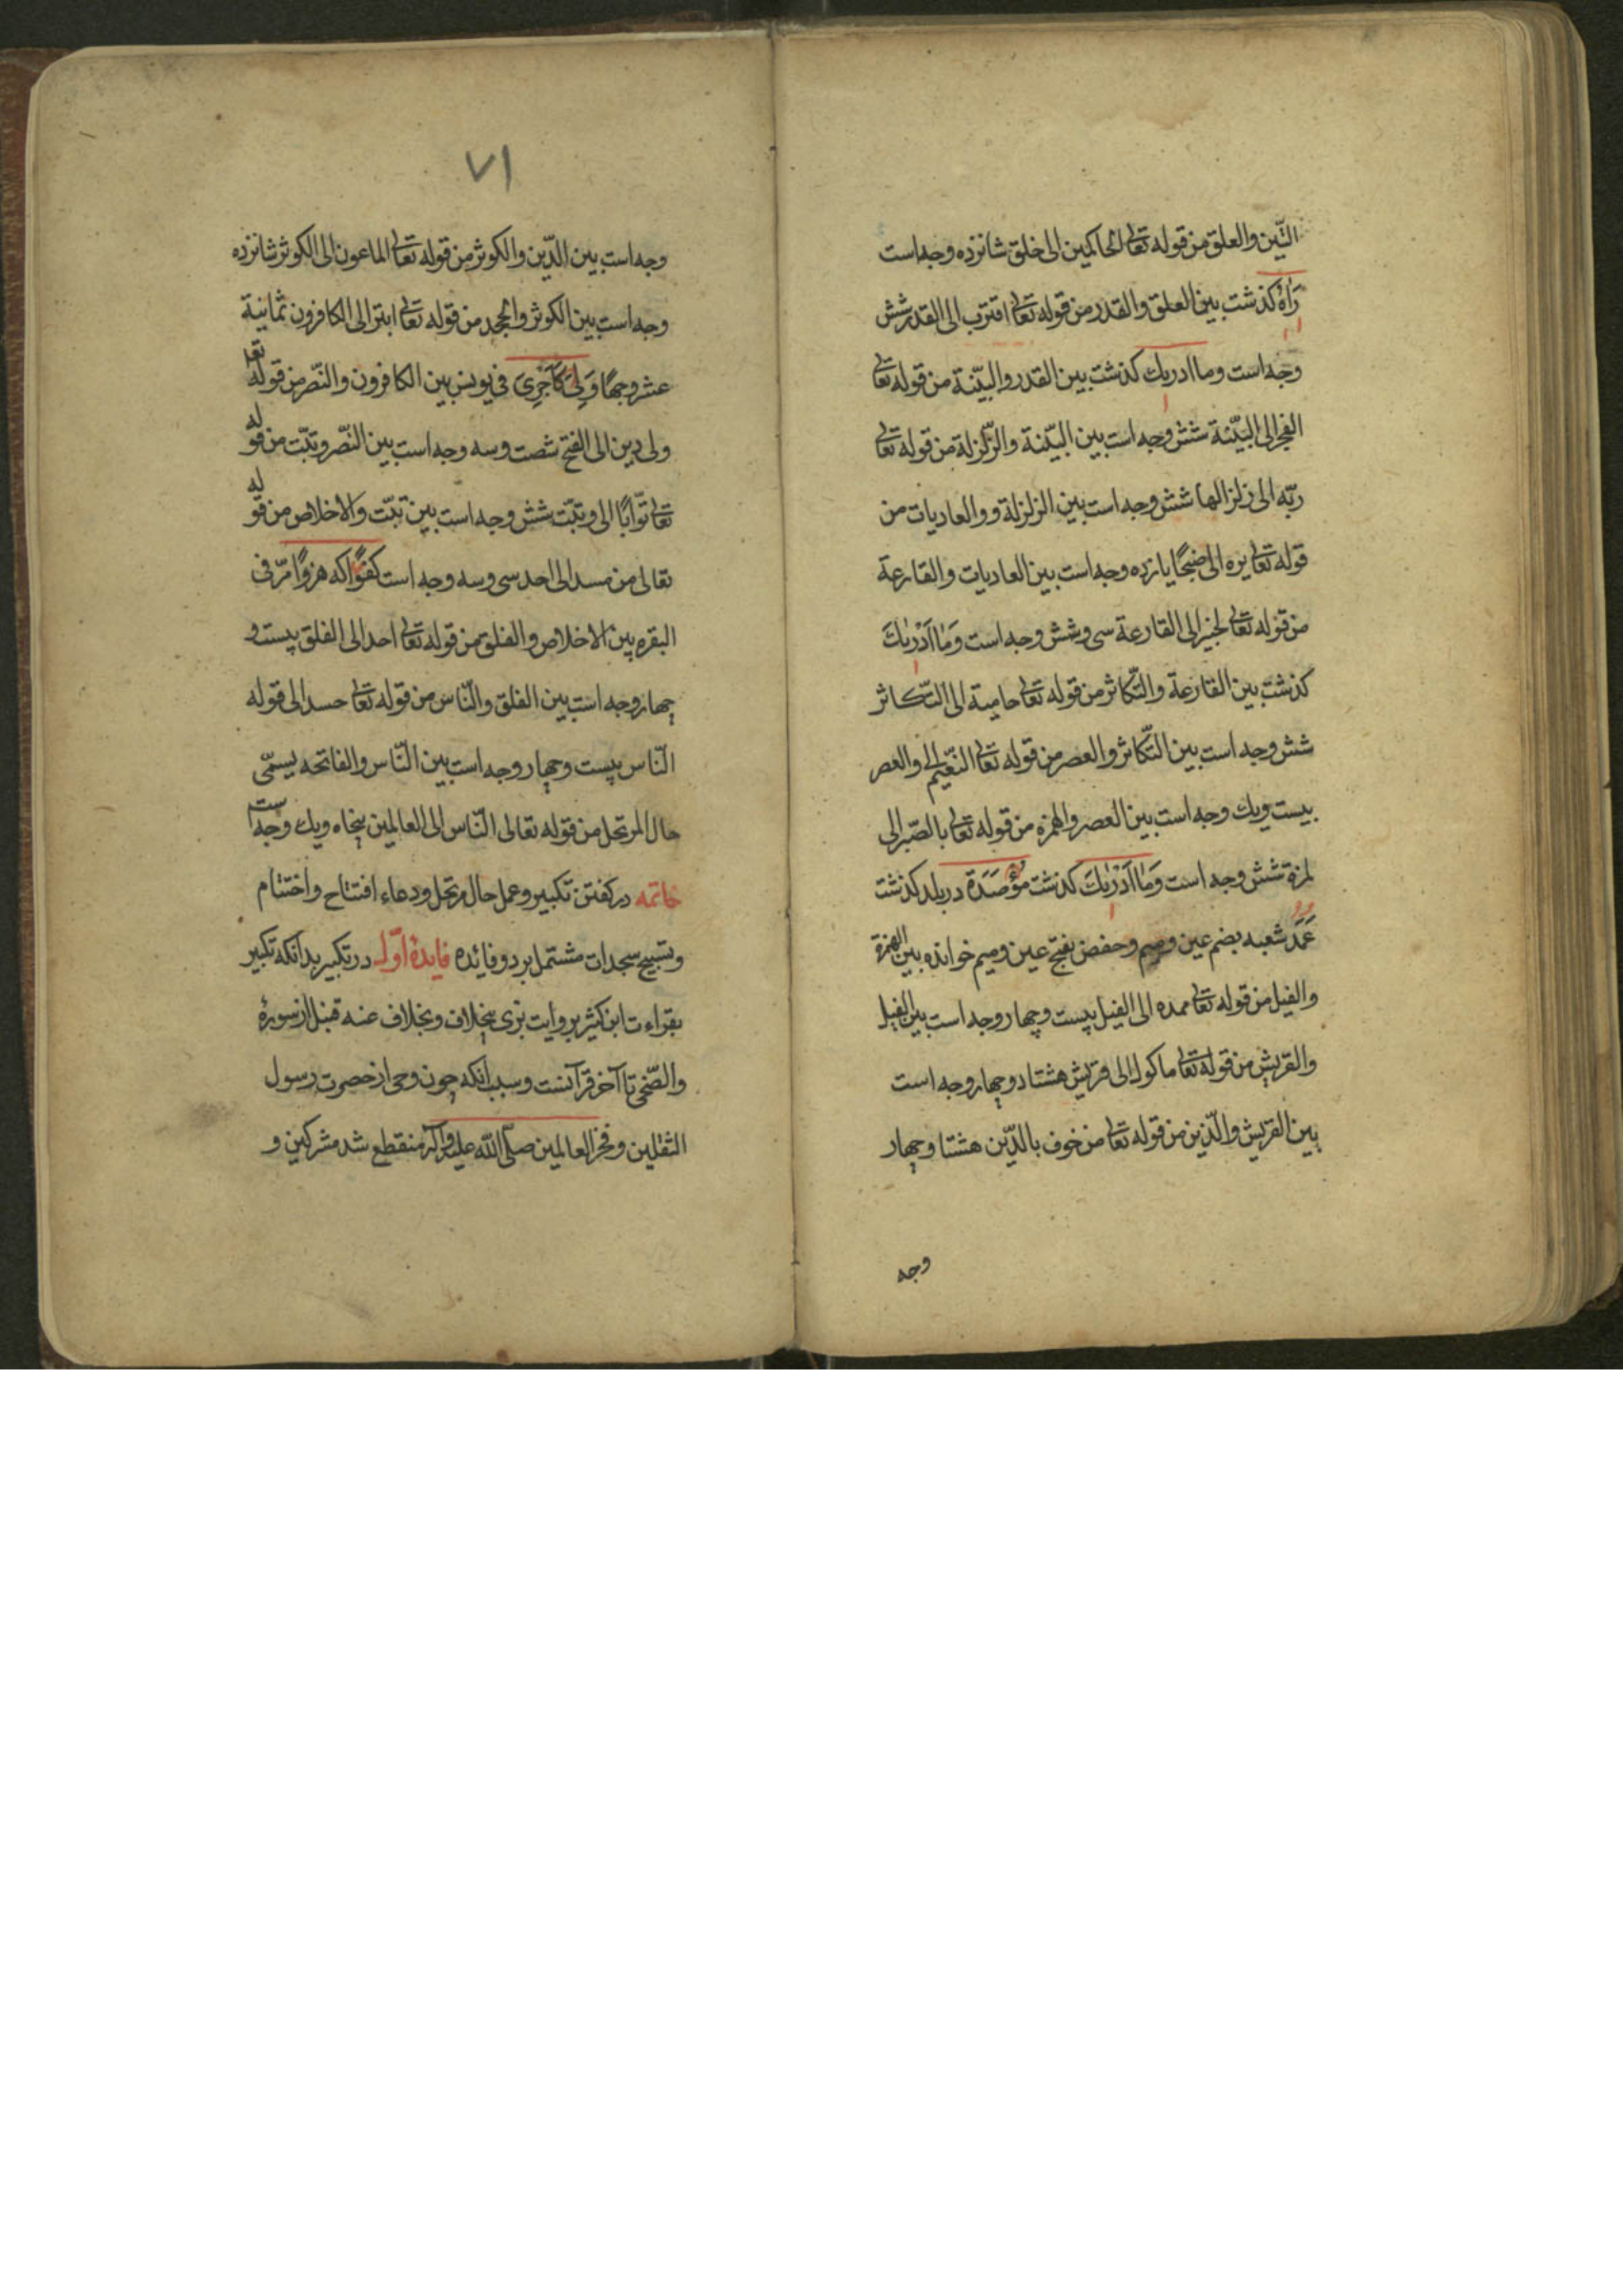 التّین والعلق من قوله تعالی الحاکمین الی خلق شانزده وجه است
رَاٰهُ کذشت بین العلق والقدر من قوله تعالی اقترب الی القدر شش
وجه است وما ادریك کذشت بین القدر والبیّنة من قوله تعالی
الفجر الی البیّنة شش وجه است بین البیّنة والزّلزلة من قوله تعالی
ربّه الی زلزالها شش وجه است بین الزلزلة و والعادیات من
قوله تعالی یره الی ضبحًا یازده وجه است بین العادیات والقارعة
من قوله تعالی لخبیر الی القارعة سی وشش وجه است وَمٰا اَدْرٰیكَ
کذشت بین القارعة والتّکاثر من قوله تعالی حامیة الی التّکاثر
شش وجه است بین التّکاثر والعصر من قوله تعالی النّعیم الی والعصر
بیست ویك وجه است بین العصر والهمزه من قوله تعالی بالصّبر الی
لمزة شش وجه است وَمٰا اَدْرٰیكَ کذشت مؤْصَدَة در بلد کذشت
عَمَد شعبه بضم عین ومیم وحفص بفتح عین ومیم خوانده بین الهمزة
والفیل من قوله تعالی ممدده الی الفیل بیست وچهار وجه است بین الفیل
والقریش من قوله تعالی ماکول الی قریش هشتاد وچهار وجه است
بین القریش والدّین من قوله تعالی من خوف بالدّین هشتا وچهار
وجه
٧١
وجه است بین الدّین والکوثر من قوله تعالی الماعون الی الکوثر شانزده
وجه است بین الکوثر والجحد من قوله تعالی ابتر الی الکافرون ثمانیة
عشر وجهًا وَلِیَ کَاَجْرِیَ فی یونس بین الکافرون والنّصر من قوله تعا
ولی دین الی الفتح شصت وسه وجه است بین النّصر وتبّت من قوله
تعالی توّابًا الی وتبّت شش وجه است بین تبّت والاخلاص من قوله
تعالی من مسد الی احد سی وسه وجه است کفوًا که هزوًا مرّ فی
البقره بین الاخلاص والفلق من قوله تعالی احد الی الفلق بیست و
چهار وجه است بین الفلق والنّاس من قوله تعالی حسد الی قوله
النّاس بیست وچهار وجه است بین النّاس والفاتحه یسمّی
حال المرتحل من قوله تعالی النّاس الی العالمین پنجاه ویك وجه است
خاتمه در کفتن تکبیر وعمل حال مرتحل ودعاء افتتاح واختتام
وتسبیح سجدات مشتمل بر دو فائده فایدهٔ اوّل در تکبیر بدانکه تکبیر
بقراءت ابن کثیر بروایت بزی بخلاف وبخلاف عنه قبل از سورهٔ
والضّحی تا آخر قرآنست وسبب انکه چون وحی از حضرت رسول
الثقلین وفخر العالمین صلّی اللّه علیه وآله منقطع شد مشرکین و